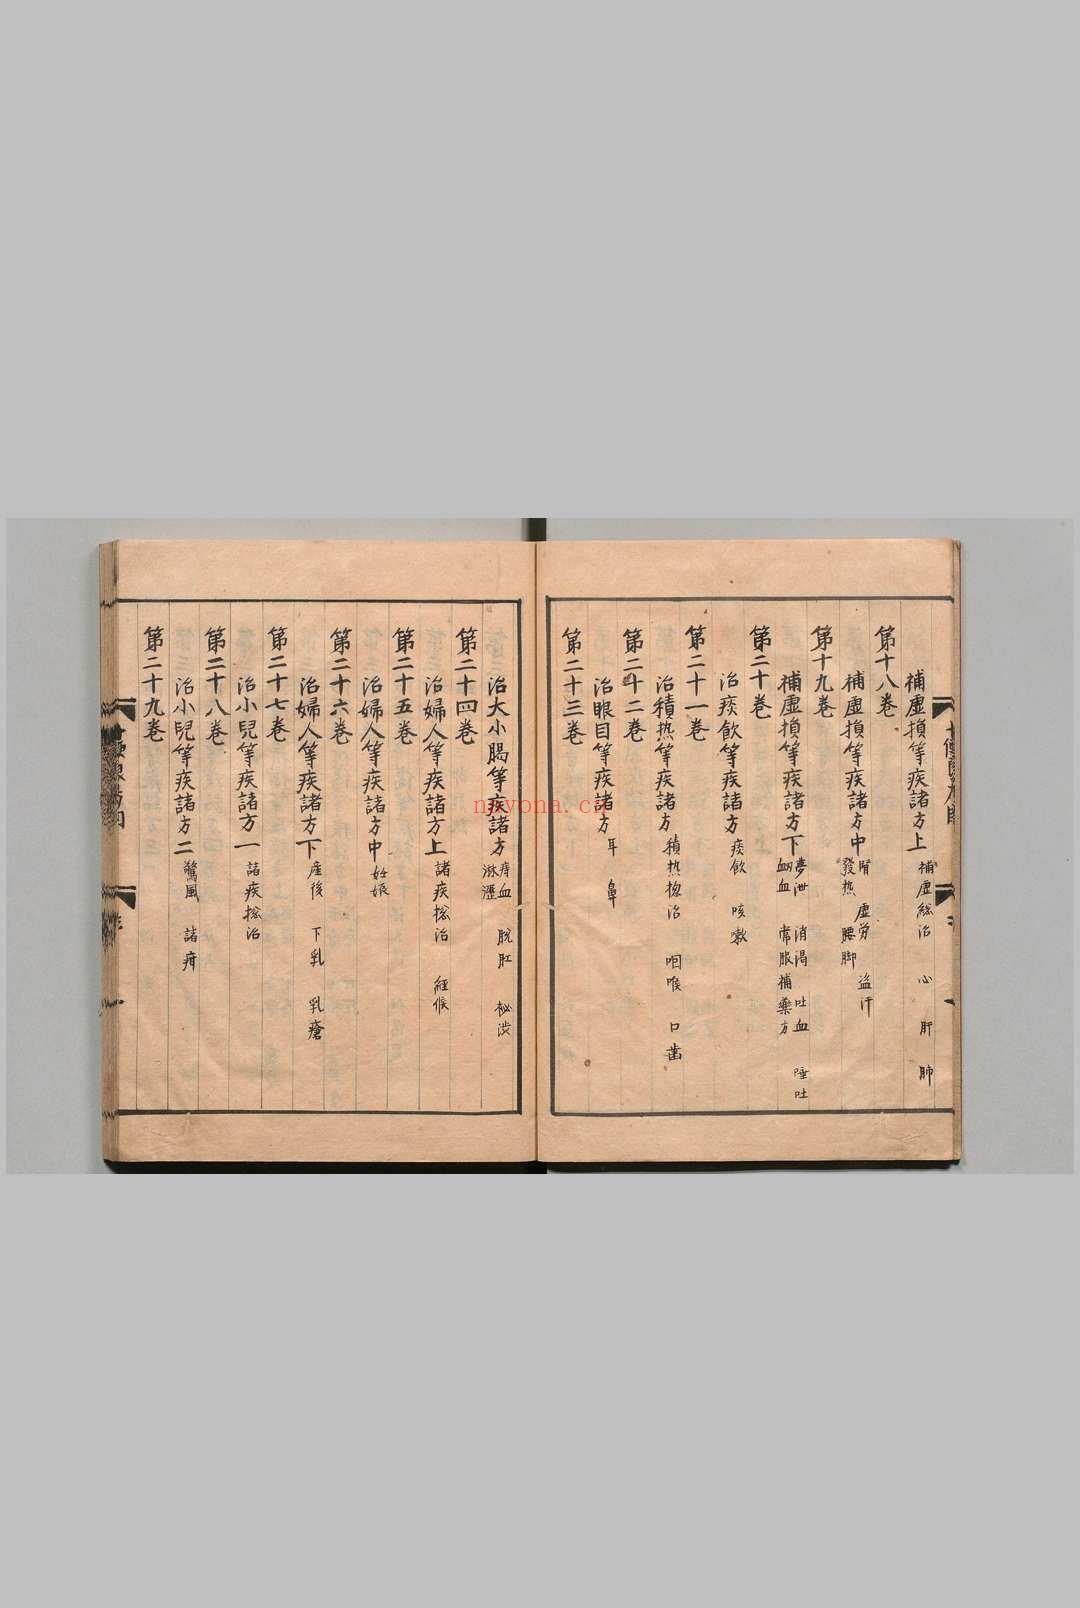 補虛損等疾諸方上 補虛総治 心 肝 肺
第十八卷
補虛損等疾諸方中 腎 虛労 盗汗
發热 腰脚
第十九卷
補虛損等疾諸方下 夢泄 消渴 吐血 唾吐
衂血 常服補藥方
第二十卷
治痰飲等疾諸方 痰飲 咳嗽
第二十一卷
治積热等疾諸方 積热捴治 咽喉 口齒
第二十二卷
治眼目等疾諸方 耳 鼻
第二十三卷
治大小腸等疾諸方 痔血 脫肛 秘澁
淋瀝
第二十四卷
治婦人等疾諸方上 諸疾捴治 經候
第二十五卷
治婦人等疾諸方中 妊娠
第二十六卷
治婦人等疾諸方下 産後 下乳 乳瘡
第二十七卷
治小兒等疾諸方一 諸疾捴治
第二十八卷
治小兒等疾諸方二 驚風 諸疳
第二十九卷